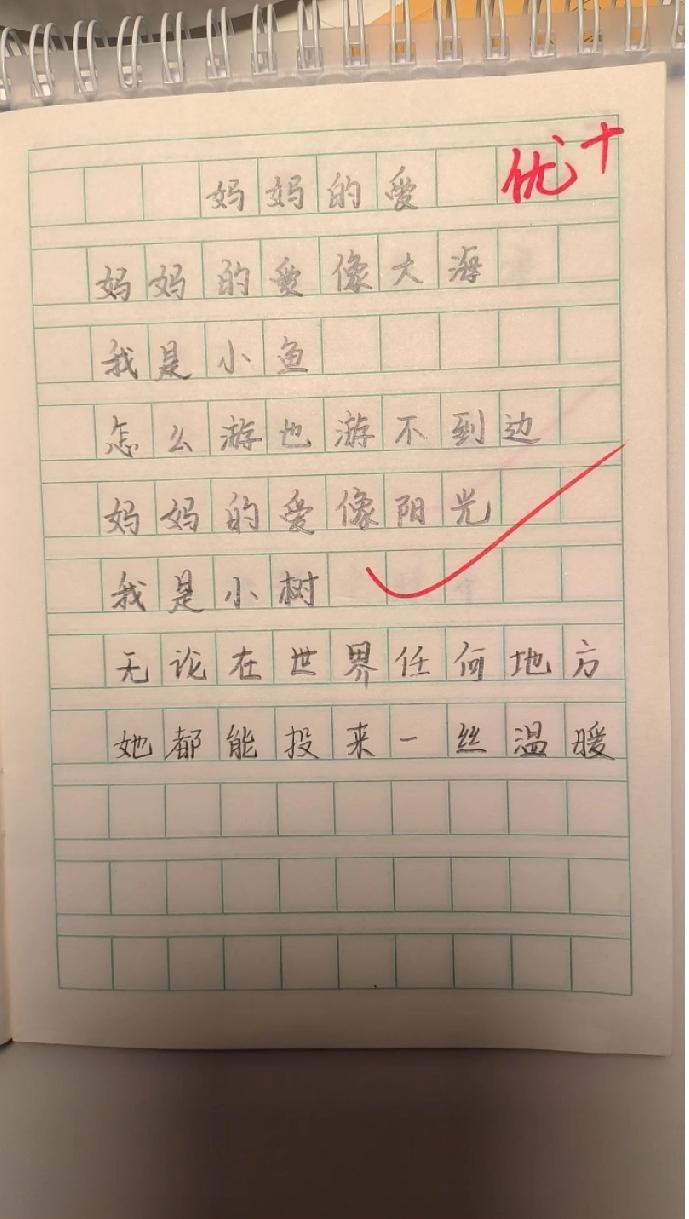 妈妈的爱
优+
妈妈的爱像大海
我是小鱼
怎么游也游不到边
妈妈的爱像阳光
我是小树
无论在世界任何地方
她都能投来一丝温暖